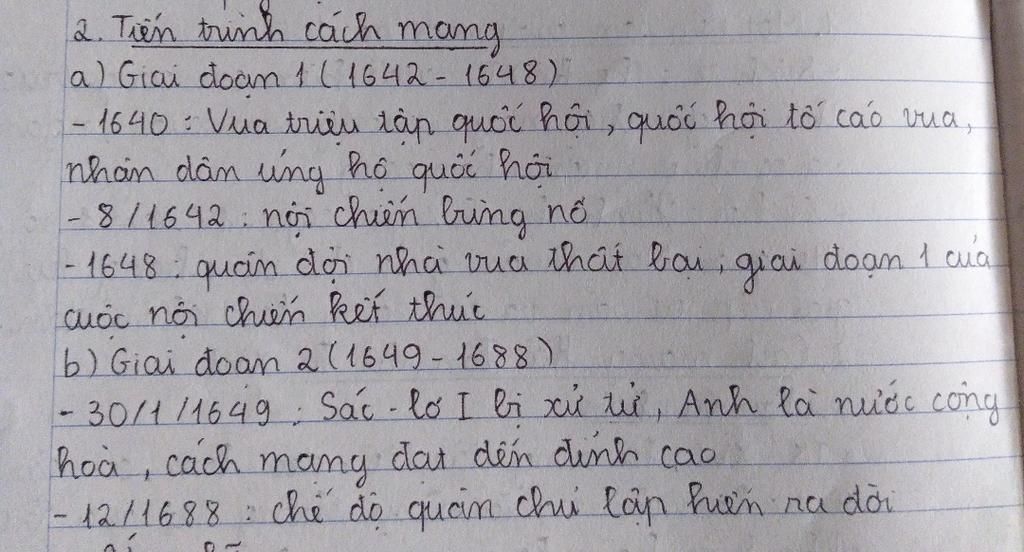 2. Tiến trình cách mạng
a) Giai đoạn 1 (1642 - 1648)
- 1640 : Vua triệu tập quốc hội, quốc hội tố cáo vua,
nhân dân ủng hộ quốc hội
- 8/1642 : nội chiến bùng nổ
- 1648 : quân đội nhà vua thất bại, giai đoạn 1 của
cuộc nội chiến kết thúc
b) Giai đoạn 2 (1649 - 1688)
- 30/1/1649 : Sác - lơ I bị xử tử, Anh là nước cộng
hoà, cách mạng đạt đến đỉnh cao
- 12/1688 : chế độ quân chủ lập hiến ra đời